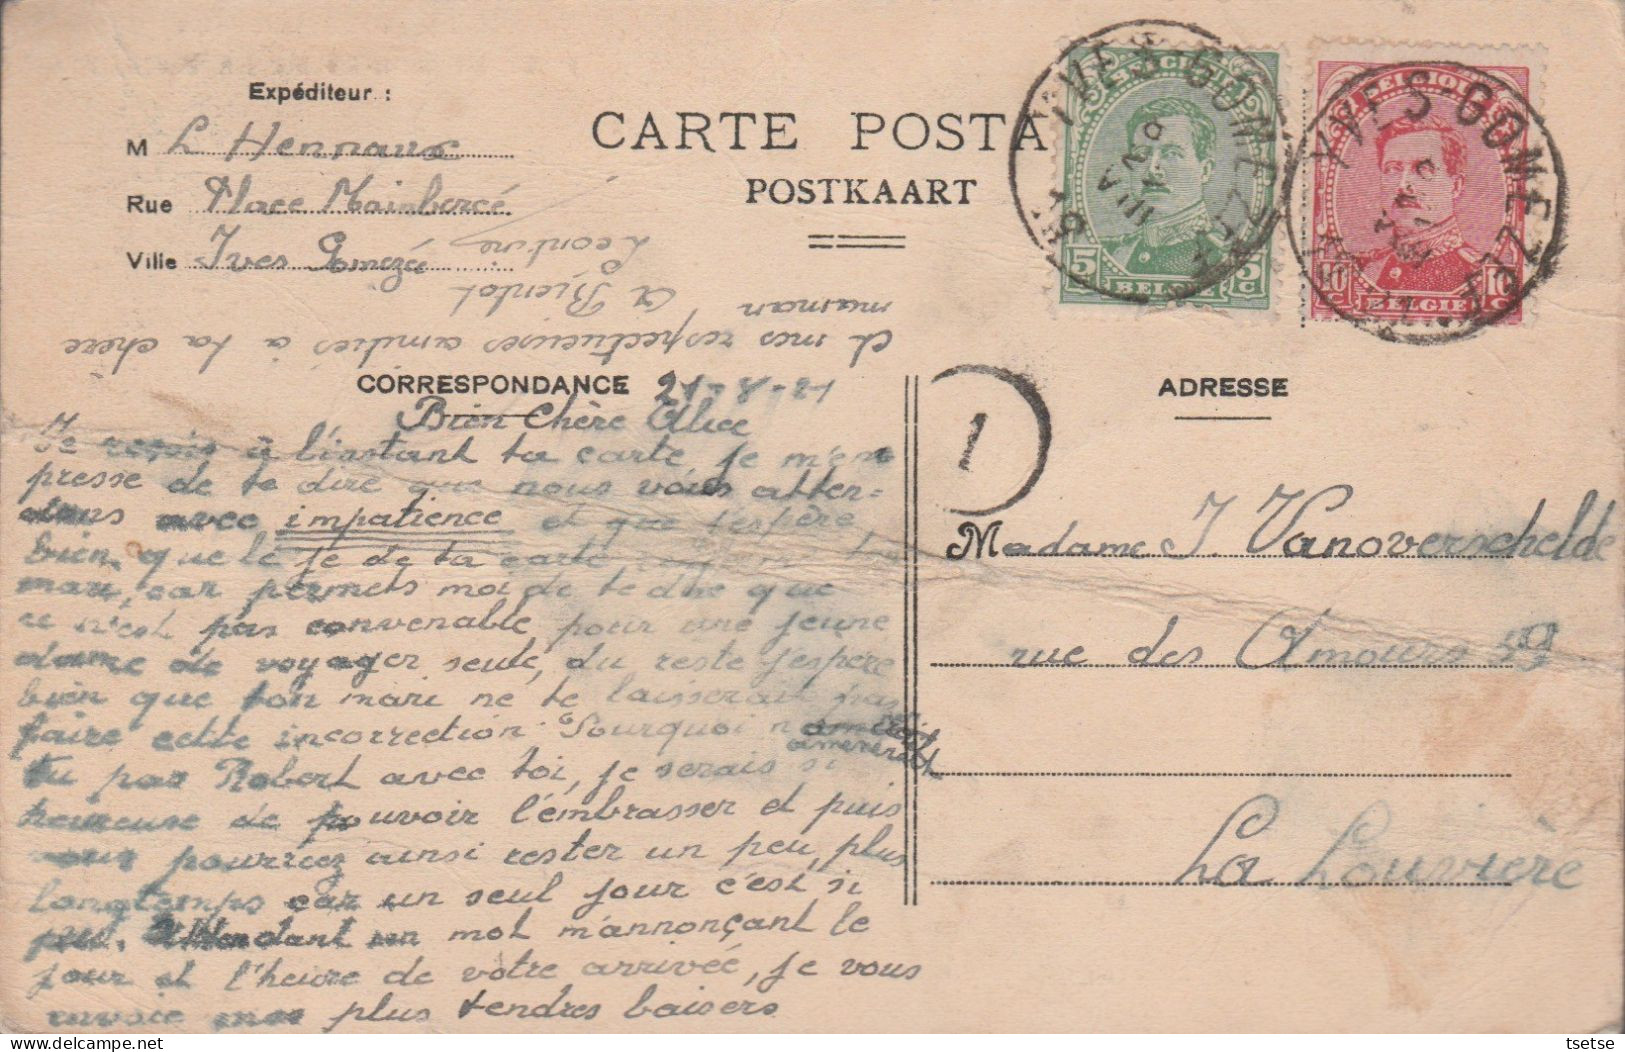 Expéditeur :
M L Hennaux
Rue Place Mainborcé
Ville Yves Gomezée
CARTE POSTA
POSTKAART
YVES-GOMEZEE
YVES-GOMEZEE
BELGIQUE
5 c 5 c
BELGIË
BELGIQUE
10 c 10 c
BELGIË
CORRESPONDANCE
21-8-21
Bien Chère Alice
Je reçois à l'instant ta carte je m'em
presse de te dire que nous vous atten=
dons avec impatience et que j'espère
bien, que le je de ta carte
mari, car permets moi de te dire que
ce n'est pas convenable pour une jeune
dame de voyager seule, du reste j'espère
bien que ton mari ne te laisserait pas
faire cette incorrection. Pourquoi n'
amènerait
tu pas Robert avec toi, je serais si
heureuse de pouvoir l'embrasser et puis
vous pourriez ainsi rester un peu, plus
longtemps car un seul jour c'est si
peu. Attendant un mot m'annonçant le
jour et l'heure de votre arrivée, je vous
envoie mes plus tendres baisers
et mes respectueuses amitiés à ta chère
maman A Bientot
Léontine
ADRESSE
1
Madame J. Vanoverschelde
rue des Amours 59
La Louvière
tsetse